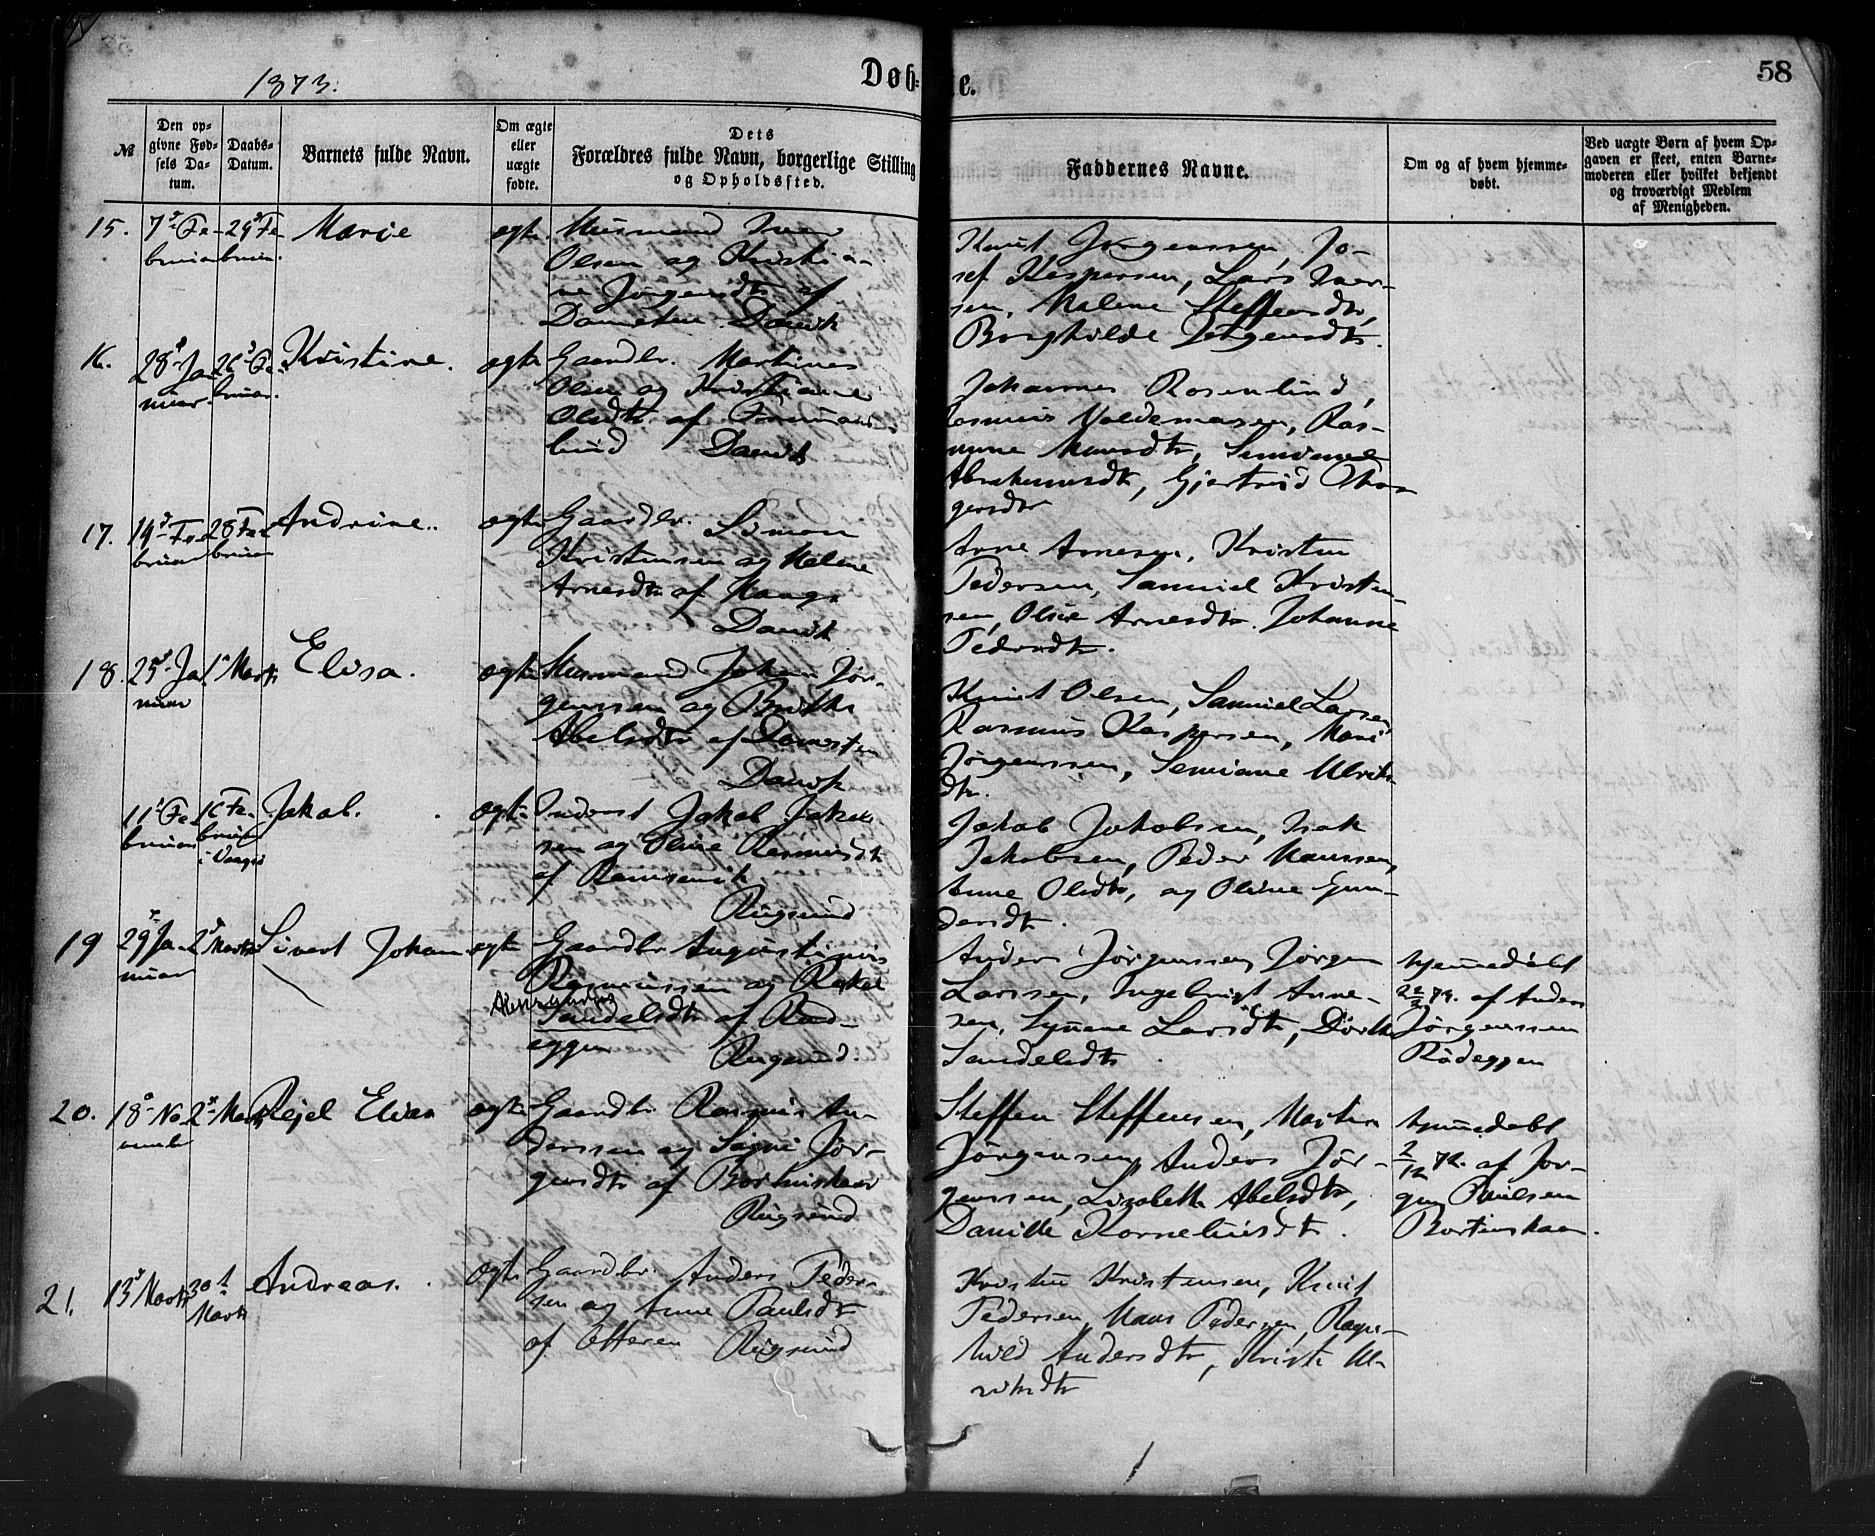 1873.
Døb-te.
58
№
Den op-
givne Fød-
sels Da-
tum.
Daabs-
Datum.
Barnets fulde Navn.
Om ægte
eller
uægte
fødte.
Dets
Forældres fulde Navn, borgerlige Stilling
og Opholdssted.
Faddernes Navne.
Om og af hvem hjemme-
døbt.
Ved uægte Børn af hvem Op-
gaven er skeet, enten Barne-
moderen eller hvilket bekjendt
og troværdigt Medlem
af Menigheden.
15.
7de Fe-
bruar
23de Fe-
bruar.
Marie
ægte.
Husmand Iver
Olsen og Kristia-
ne Jørgensdtr af
Damsten. Davik
Knut Jørgenssen, Jo-
sef Kaspersen, Lars Iver-
sen, Malene Steffensdtr,
Borghilde Jørgensdtr.
16.
28de Ja-
nuar.
26de Fe-
bruar.
Kristine.
ægte
Gaardbr. Martinus
Olsen og Kristiane
Olsdtr af
lund Davik
Johannes Rosenlund,
Rasmus Valdemarsen, Ras-
mine Monsdtr,
Abrahamsdtr, Gjertrud
gersdtr
17.
14de Fe-
bruar
28 Fe-
bruar
Andrine.
ægte
Gaardbr. Simon
Kristensen og Malene
Arnesdtr af Hauge
Davik
Arne Arnesen, Kristen
Pedersen, Samuel Kristen-
sen, Oline Arnesdtr. Johanne
Pedersdtr.
18.
25de Ja-
nuar
1ste Marts
Elisa.
ægte
Husmand Johan Jør-
genssen og Brithe
Abelsdtr af Damsten
Davik
Knut Olsen, Samuel Larsen
Rasmus Kaspersen, Mari
Jørgenssen, Semiane Ulriks-
dtr.
11te Fe-
bruar
16 Fe-
bruar
i Vaagsø
Jakob.
ægte
Inderst Jakob Jakob-
sen og Oline Rasmusdtr
af
Rugsund
Jakob Jakobsen, Isak
Jakobsen, Peder Monssen,
Anne Olsdtr, og Oline Gun-
dersdtr.
19
29de Ja-
nuar
2de Marts
Sivert Johan
ægte
Gaardbr Augustinus
Rasmussen og Rakel
Sandelsdtr af Rød-
eggen Rugsund.
Anders Jørgenssen, Jørgen
Larssen, Ingebrigt Anne-
sen, Larsdtr, Dorthe
Sandelsdtr.
hjemmedøbt
af Anders
Jørgenssen
Rødeggen
20.
18de No-
vember
2de Marts
Rejel Elias
ægte
Gaardbr Rasmus An-
derssen og Signe Jør-
gensdtr af Bortneskaar
Rugsund
Steffen Steffensen, Morten
Jørgensen, Anders Jør-
genssen, Lisabeth Abelsdtr,
Danille Korneliusdtr.
hjemmedøbt
2/12 72. af Jør-
gen Paulsen
Bortneskaar.
21.
13de Marts
30te
Marts
Andreas.
ægte
Gaardbr. Anders Peder-
sen og Anne Paulsdtr
af Etteren Rugsund
Kristen Kristensen, Knut
Pedersen, Mons Pedersen, Ragn-
hild Andersdtr, Kristi Ul-
riksdtr